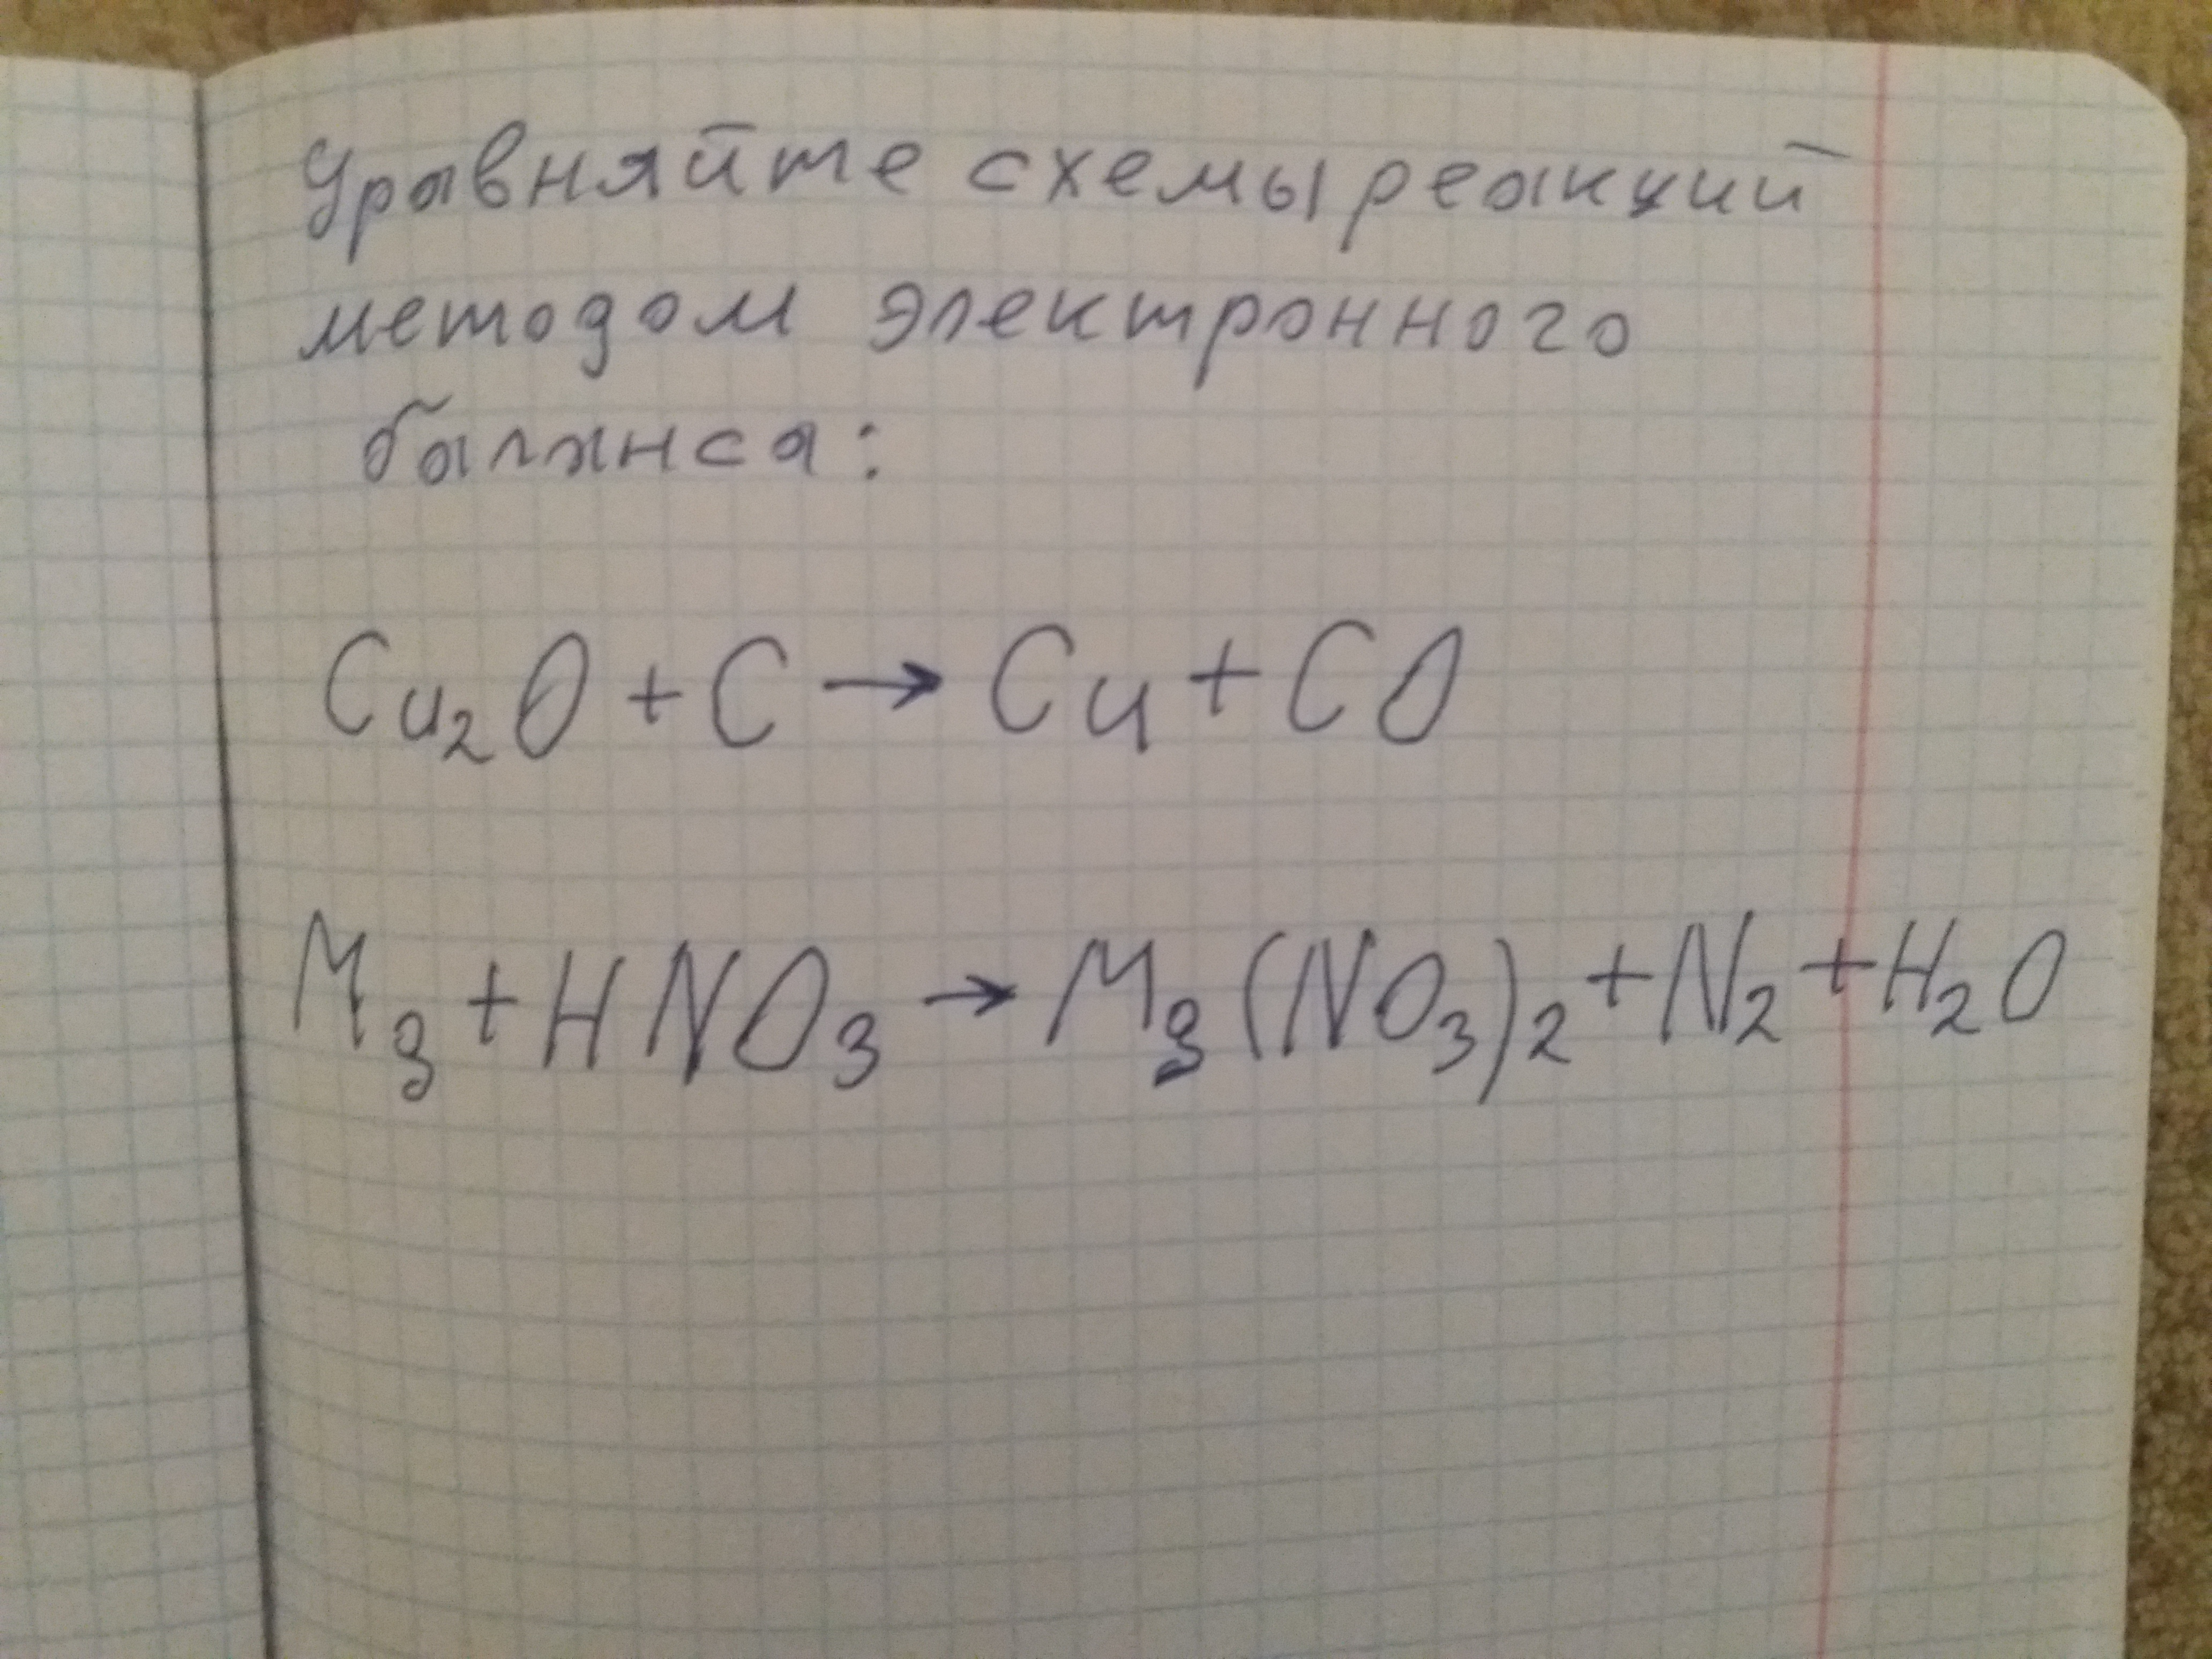 Уравняйте схемы реакций
методом электронного
баланса:
Cu₂O + C → Cu + CO
Mg + HNO₃ → Mg(NO₃)₂ + N₂ + H₂O